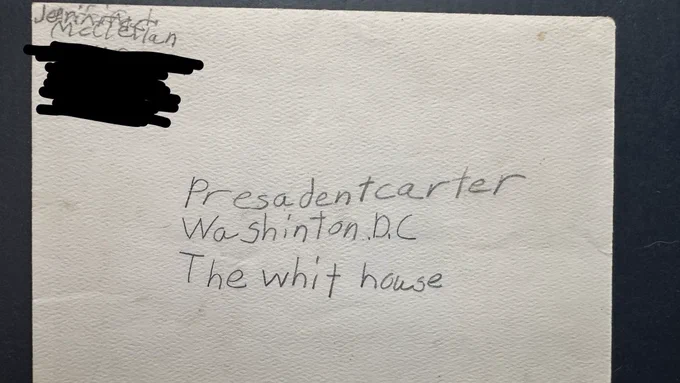 McClellan
Presadentcarter
Washinton.D.C
The whit house